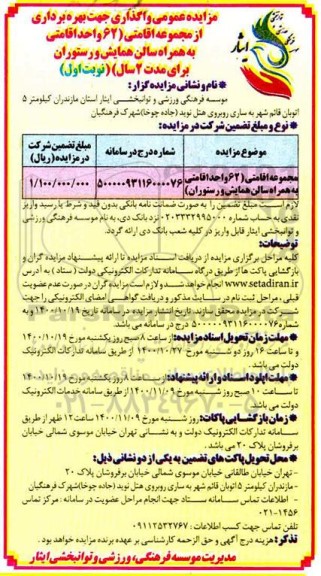 مزایده عمومی واگذاری جهت بهره برداری
از مجموعه اقامتی (۶۲ واحد اقامتی
به همراه سالن همایش و رستوران
برای مدت ۲ سال) (نوبت اول)
ایثار
نام و نشانی مزایده گزار:
موسسه فرهنگی ورزشی و توانبخشی ایثار استان مازندران کیلومتر ۵
اتوبان قائم شهر به ساری روبروی هتل نوید (جاده چوخا) شهرک فرهنگیان
نوع و مبلغ تضمین شرکت در مزایده:
موضوع مزایده
شماره درج در سامانه
مبلغ تضمین شرکت
در مزایده (ریال)
مجموعه اقامتی (۶۲ واحد اقامتی
به همراه سالن همایش و رستوران)
۵۰۰۰۰۰۹۳۱۱۶۰۰۰۰۷۶
۱/۱۰۰/۰۰۰/۰۰۰
لازم است مبلغ تضمین را به صورت ضمانت نامه بانکی بدون قید و شرط یا رسید واریز
نقدی به حساب شماره ۰۲۰۳۳۳۲۹۹۵۰۰۰ نزد بانک دی، به نام موسسه فرهنگی ورزشی
و توانبخشی ایثار قابل واریز در کلیه شعب بانک دی ارائه گردد.
توضیحات:
کلیه مراحل برگزاری مزایده از دریافت اسناد مزایده تا ارائه پیشنهاد مزایده گران و
بازگشایی پاکت ها از طریق درگاه سامانه تدارکات الکترونیکی دولت (ستاد) به آدرس
www.setadiran.ir انجام خواهد شد و لازم است مزایده گران در صورت عدم عضویت
قبلی، مراحل ثبت نام در سایت مذکور و دریافت گواهی امضای الکترونیکی را جهت
شرکت در مزایده محقق سازند. تاریخ انتشار مزایده در سامانه تاریخ ۱۴۰۰/۱۰/۱۹ به
شماره ۵۰۰۰۰۰۹۳۱۱۶۰۰۰۰۷۶ درج در سامانه می باشد.
مهلت زمان تحویل اسناد مزایده: از ساعت ۸ صبح روز یکشنبه مورخ ۱۴۰۰/۱۰/۱۹
و تا ساعت ۱۶ روز دوشنبه مورخ ۱۴۰۰/۱۰/۲۷ از طریق سامانه تدارکات الکترونیک
دولت می باشد.
مهلت آپلود اسناد و ارائه پیشنهاد: از ساعت ۸ روز یکشنبه مورخ ۱۴۰۰/۱۰/۱۹
تا ساعت ۱۰ صبح روز شنبه مورخ ۱۴۰۰/۱۱/۰۹ از طریق سامانه تدارکات الکترونیک
دولت می باشد.
زمان بازگشایی پاکات: روز شنبه مورخ ۱۴۰۰/۱۱/۰۹ ساعت ۱۲ ظهر از طریق
سامانه تدارکات الکترونیک دولت و به نشانی تهران خیابان موسوی شمالی خیابان
برفروشان پلاک ۲۰ می باشد.
محل تحویل پاکت های تضمین به یکی از دو نشانی ذیل:
- تهران خیابان طالقانی خیابان موسوی شمالی خیابان برفروشان پلاک ۲۰
- مازندران کیلومتر ۵ اتوبان قائم شهر به ساری روبروی هتل نوید (جاده چوخا) شهرک فرهنگیان
- اطلاعات تماس سامانه ستاد جهت انجام مراحل عضویت در سامانه: مرکز تماس
۰۲۱-۱۴۵۶
تلفن تماس جهت کسب اطلاعات: ۰۹۱۱۲۵۳۲۷۶۷
تذکر: هزینه درج آگهی و حق الزحمه کارشناسی بر عهده برنده مزایده خواهد بود.
مدیریت موسسه فرهنگی، ورزشی و توانبخشی ایثار